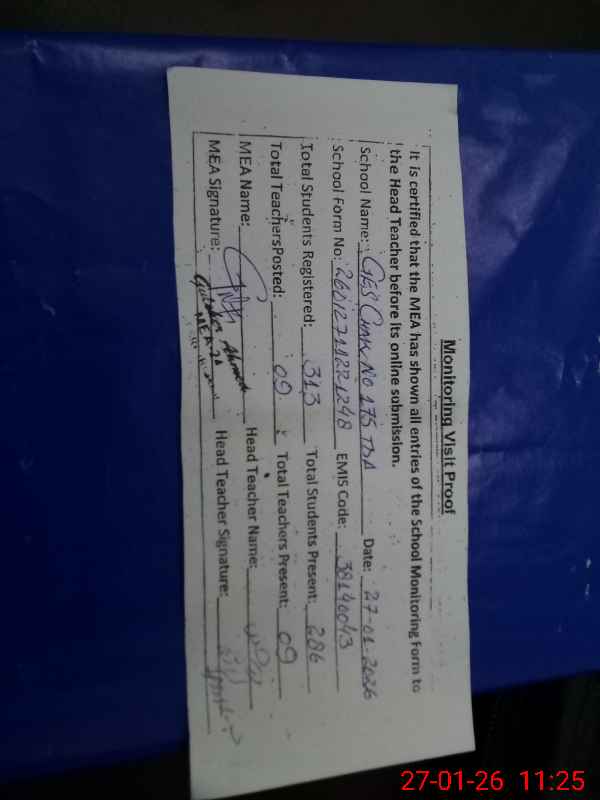 Monitoring Visit Proof
It is certified that the MEA has shown all entries of the School Monitoring Form to
the Head Teacher before its online submission.
School Name: GES CHAK NO 175 TDA Date: 27-01-2026
School Form No: EMIS Code: 38140043
Total Students Registered: 313 Total Students Present: 286
Total TeachersPosted: 09 Total Teachers Present: 09
MEA Name: Head Teacher Name:
MEA Signature: Head Teacher Signature:
Ahmad
27-01-26 11:25